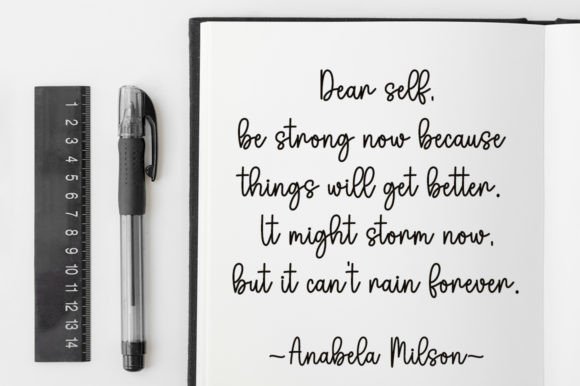 Dear self,
be strong now because
things will get better.
It might storm now,
but it can't rain forever.
~Anabela Milson~
1 2 3 4 5 6 7 8 9 10 11 12 13 14